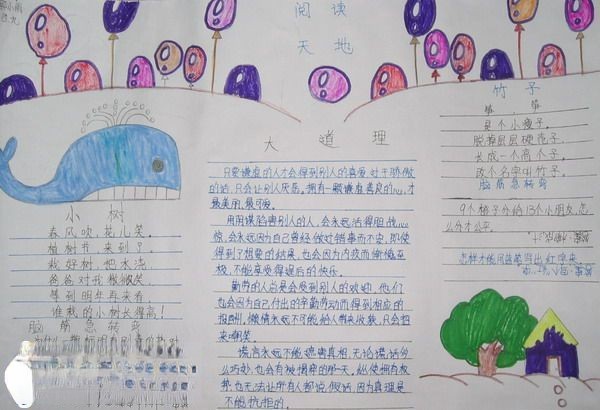 阅读
天地
小树
春风吹，花儿笑。
植树节，来到了。
栽好树，把水浇，
爸爸对我微微笑。
等到明年再来看
谁栽的小树长得高！
脑筋急转弯
大道理
只要谦虚的人才会得到别人的喜爱，对于骄傲
的话，只会让别人厌恶。拥有一颗谦虚善良的心，才
最美丽，最可爱。
用阴谋陷害别人的人，会永远活得胆战心
惊，会永远因为自己曾经做过错事而不安，即使
得到了想要的结果，也会因为内疚而惭愧至
极，不能享受得逞后的快乐。
勤劳的人总是会受到别人的欢迎，他们
也会因为自己付出的辛勤劳动而得到相应的
报酬，懒惰永远不可能给人带来收获，只会招
来嘲笑。
谎言永远不能遮害真相，无论谎话分
么巧妙，也会有被揭穿的那一天。纵使拥有权
势，也无法让所有人都说假话，因为真理是
不能抗拒的。
竹子
笋，笋，
是个小瘦子。
脱掉层层硬壳子，
长成一个高个子。
改个名字叫竹子。
脑筋急转弯
9个橙子分给13个小朋友，怎
么分才公平。
怎样才能用蓝笔写出红字来。